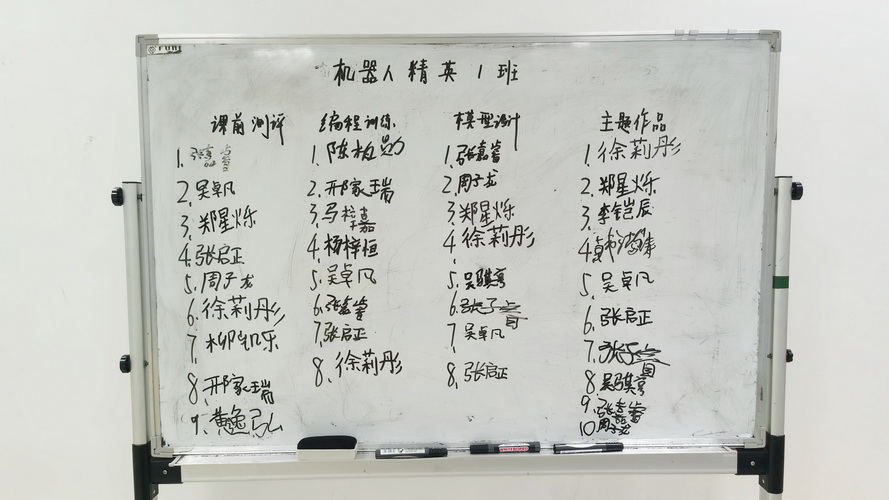 机器人精英1班
课前测评
1. 张嘉睿
2. 吴卓凡
3. 郑星烁
4. 张启正
5. 周子龙
6. 徐莉彤
7. 柳凯乐
8. 邢家瑞
9. 黄逸弘
编程训练
1. 陈柏勋
2. 邢家瑞
3. 马梓嘉
4. 杨梓恒
5. 吴卓凡
6. 张嘉睿
7. 张启正
8. 徐莉彤
模型设计
1. 张嘉睿
2. 周子龙
3. 郑星烁
4. 徐莉彤
5. 吴骐亨
6. 张子睿
7. 吴卓凡
8. 张启正
主题作品
1. 徐莉彤
2. 郑星烁
3. 李铠辰
4.
5. 吴卓凡
6. 张启正
7. 张子睿
8. 吴骐亨
9. 张嘉睿
10. 周子龙